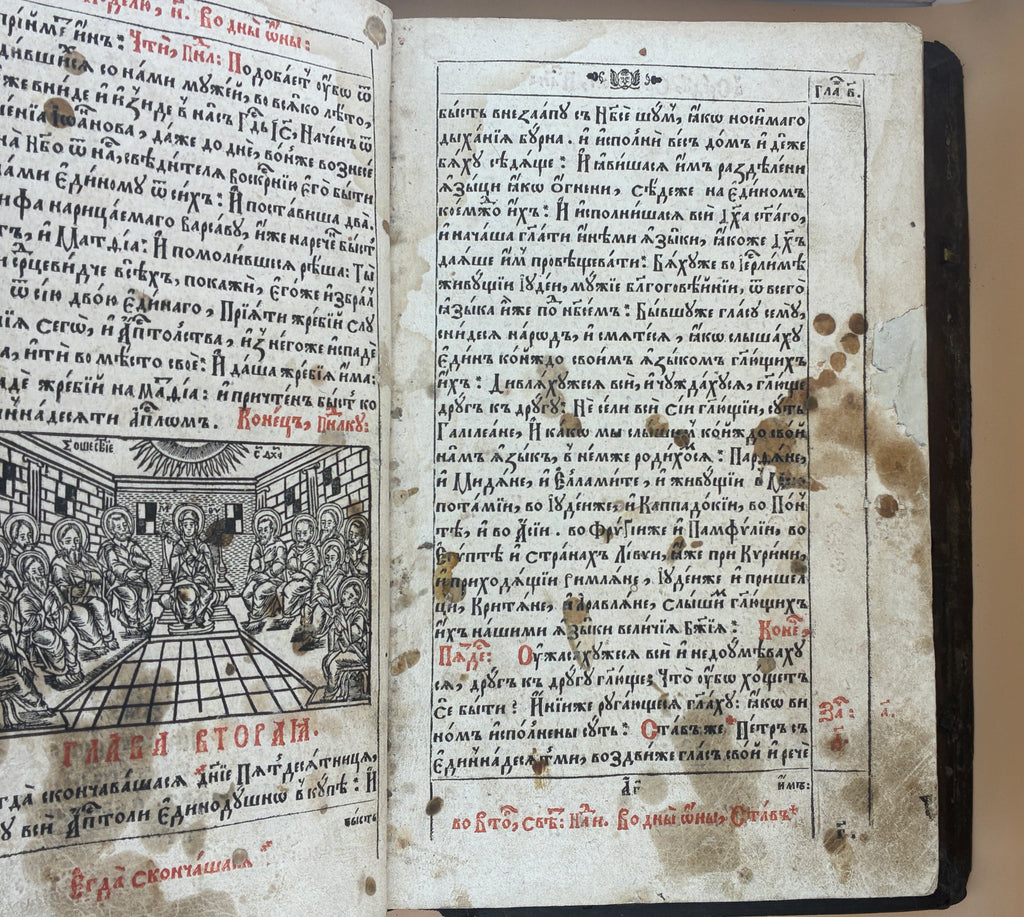 недѣлю, и҃. Во дны̀ ѡ҆́ны:
прїи́мете и҆́нъ: Чтѝ, Пн҃л: Подоба́етъ ᲂу҆̀бѡ ѿ
ди́вшихсѧ со на́ми мꙋже́й, во всѧ́ко лѣ́то,
же вни́де и҆ и҆зы́де в на́съ Гд҇ь І҆с҃, Наче́нъ ѿ
ще́нїѧ І҆ѡа́ннова, да́же до дне, во́ньже вознесе́
на Нб҃о ѿ на́съ, свѣдѣ́телѧ воскрⷭ҇нїю є҆гѡ̀ бы́ти
на́ми є҆ди́номꙋ ѿ си́хъ: И҆ поста́виша два̀.
и́фа нарица́емаго Варса́вꙋ, и҆́же нарече́нъ бы́стъ
тъ, и҆ Матѳі́а: И҆ помоли́вшесѧ рѣ́ша: Ты̀
и срⷣцеви́дче всѣ́хъ, покажѝ, є҆го́же и҆збра́лъ
ѿ сі́ю двою̀ є҆ди́наго, Прїѧ́ти жре́бїй слꙋ
нїѧ сегѡ̀, и҆ А҆пⷭ҇толства, и҆з̾ него́же и҆спадѐ
а, и҆тѝ во мѣ́сто своѐ: И҆ да́ша жре́бїѧ и҆́ма:
падѐ жре́бїй на Матѳі́а: и҆ причте́нъ бы́стъ ко
ди́ннадесѧти а҆пⷭ҇лѡмъ. Коне́цъ, Пн҃лкꙋ:
Сошествїе С҃ Дх҃а
ГЛАВА ВТОРАѦ.
гда̀ скончава́шасѧ дн҃їе Пѧтдесѧ́тницѧ,
ꙋ всѝ А҆пⷭ҇толи є҆динодꙋ́шнѡ вкꙋ́пѣ: И҆
бысть
Є҆гда̀ сконча́шасѧ
Гла҃ в҃.
бы́сть внеза́апꙋ съ Нб҃сѐ шꙋ́м, ꙗ҆́кѡ носи́маго
дыха́нїѧ бꙋ́рна. и҆ и҆спо́лни ве́съ до́мъ и҆дѣже
бѧ́хꙋ сѣдѧ́ще: И҆ ꙗ҆ви́шасѧ и҆̀мъ раздѣле́ни
ѧ҆зы́ци ꙗ҆́кѡ ѻ҆́гнени, Сѣ́деже на є҆ди́номъ
кое́мждо и҆́хъ: И҆ и҆спо́лнишасѧ всѝ Дх҃а ст҃а́го,
и҆ нача́ша гл҃а́ти и҆ны́ми ѧ҆зы́ки, ꙗ҆́коже Дх҃ъ
даѧ́ше и҆̀мъ провѣщева́ти: Бѧ́хꙋже во І҆ерⷭ҇ли́мѣ
живꙋ́щїи І҆ꙋде́и, мꙋ́жїе блⷢ҇оговѣ́йнїи, ѿ всего̀
ꙗ҆зы́ка и҆̀же под нб҃се́мъ: Бы́вшꙋже гла́сꙋ семꙋ̀,
сни́десѧ наро́дъ, и҆ смѧте́сѧ, ꙗ҆́кѡ слы́шахꙋ
є҆ди́нъ ко́йждо свои́мъ ѧ҆зы́комъ гл҃ющихъ
и҆́хъ: Дивлѧ́хꙋжесѧ всѝ, и҆ чꙋжда́хꙋсѧ, гл҃юще
дрꙋ́гъ къ дрꙋ́гꙋ: Не се́ли всѝ сі́и гл҃ющїи, сꙋ́ть
Галїле́ане, И҆ ка́кѡ мы̀ слы́шимъ ко́йждо сво́й
на́мъ ѧ҆зы́къ, в не́мже роди́хомсѧ: Па́рдѧне,
и҆ Ми́дѧне, и҆ Є҆лла́мите, и҆ живꙋ́щїи в Месо
пота́мїи, во І҆ꙋде́иже, и҆ Каппадо́кїи, во По́н
тѣ, и҆ во А҆сі́и. во Фрѷ́гїиже и҆ Памфѷ́лїи, во
Є҆гѵ́птѣ и҆ стра́нахъ Лївꙋ́и, ꙗ҆́же при Кѷри́нїи,
и҆ приходѧ́щїи Ри́млѧне, І҆ꙋде́иже и҆ прише́л
ци, Кри́тѧне, и А҆ра́влѧне, слы́шимъ гл҃ющихъ
и҆́хъ на́шими ѧ҆зы́ки вели́чїѧ Бж҃їѧ: Коне́,
Пѧⷣде: Оу҆жаса́хꙋжесѧ всѝ и҆ недоꙋмѣ́вахꙋ
сѧ, дрꙋ́гъ къ дрꙋ́гꙋ гл҃юще: Что̀ ᲂу҆̀бѡ хо́щетъ
сѐ бы́ти? И҆ні́иже рꙋга́ющесѧ гл҃ахꙋ: ꙗ҆́кѡ ви
но́мъ и҆спо́лнены сꙋ́ть: Ста́въже* Пе́тръ съ
є҆диннадесѧ́тми, воздви́же гла́съ сво́й и҆ речѐ
и҆̀мъ:
во Вто́, свѣ: Нлⷣи. Во дны̀ ѡ҆́ны, Ста́въ*